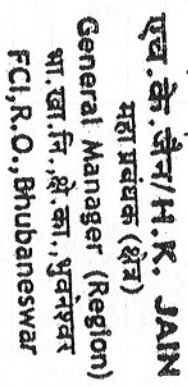 एच.के.जैन/H.K. JAIN
महाप्रबंधक (क्षेत्र)
General Manager (Region)
भा.खा.नि.,क्षे.का.,भुवनेश्वर
FCI,R.O.,Bhubaneswar